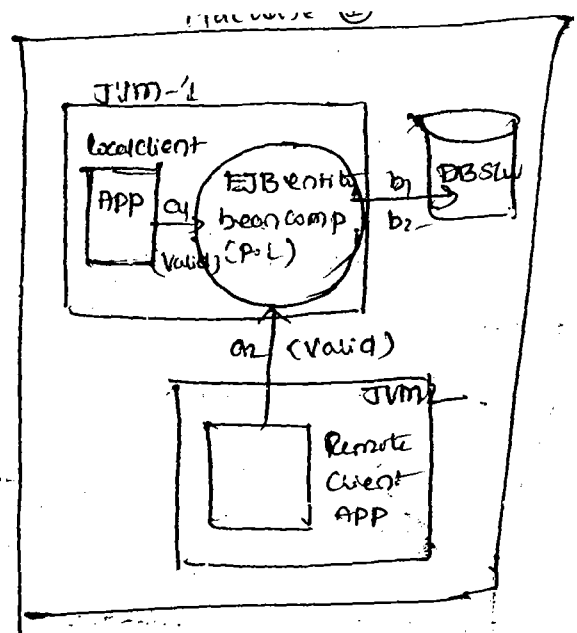 Machine ①
JVM-1
localclient
APP
a1
(Valid)
EJB entity
bean comp
(P.L)
b1
b2
DBS/w
a2 (Valid)
JVM2
Remote
Client
APP